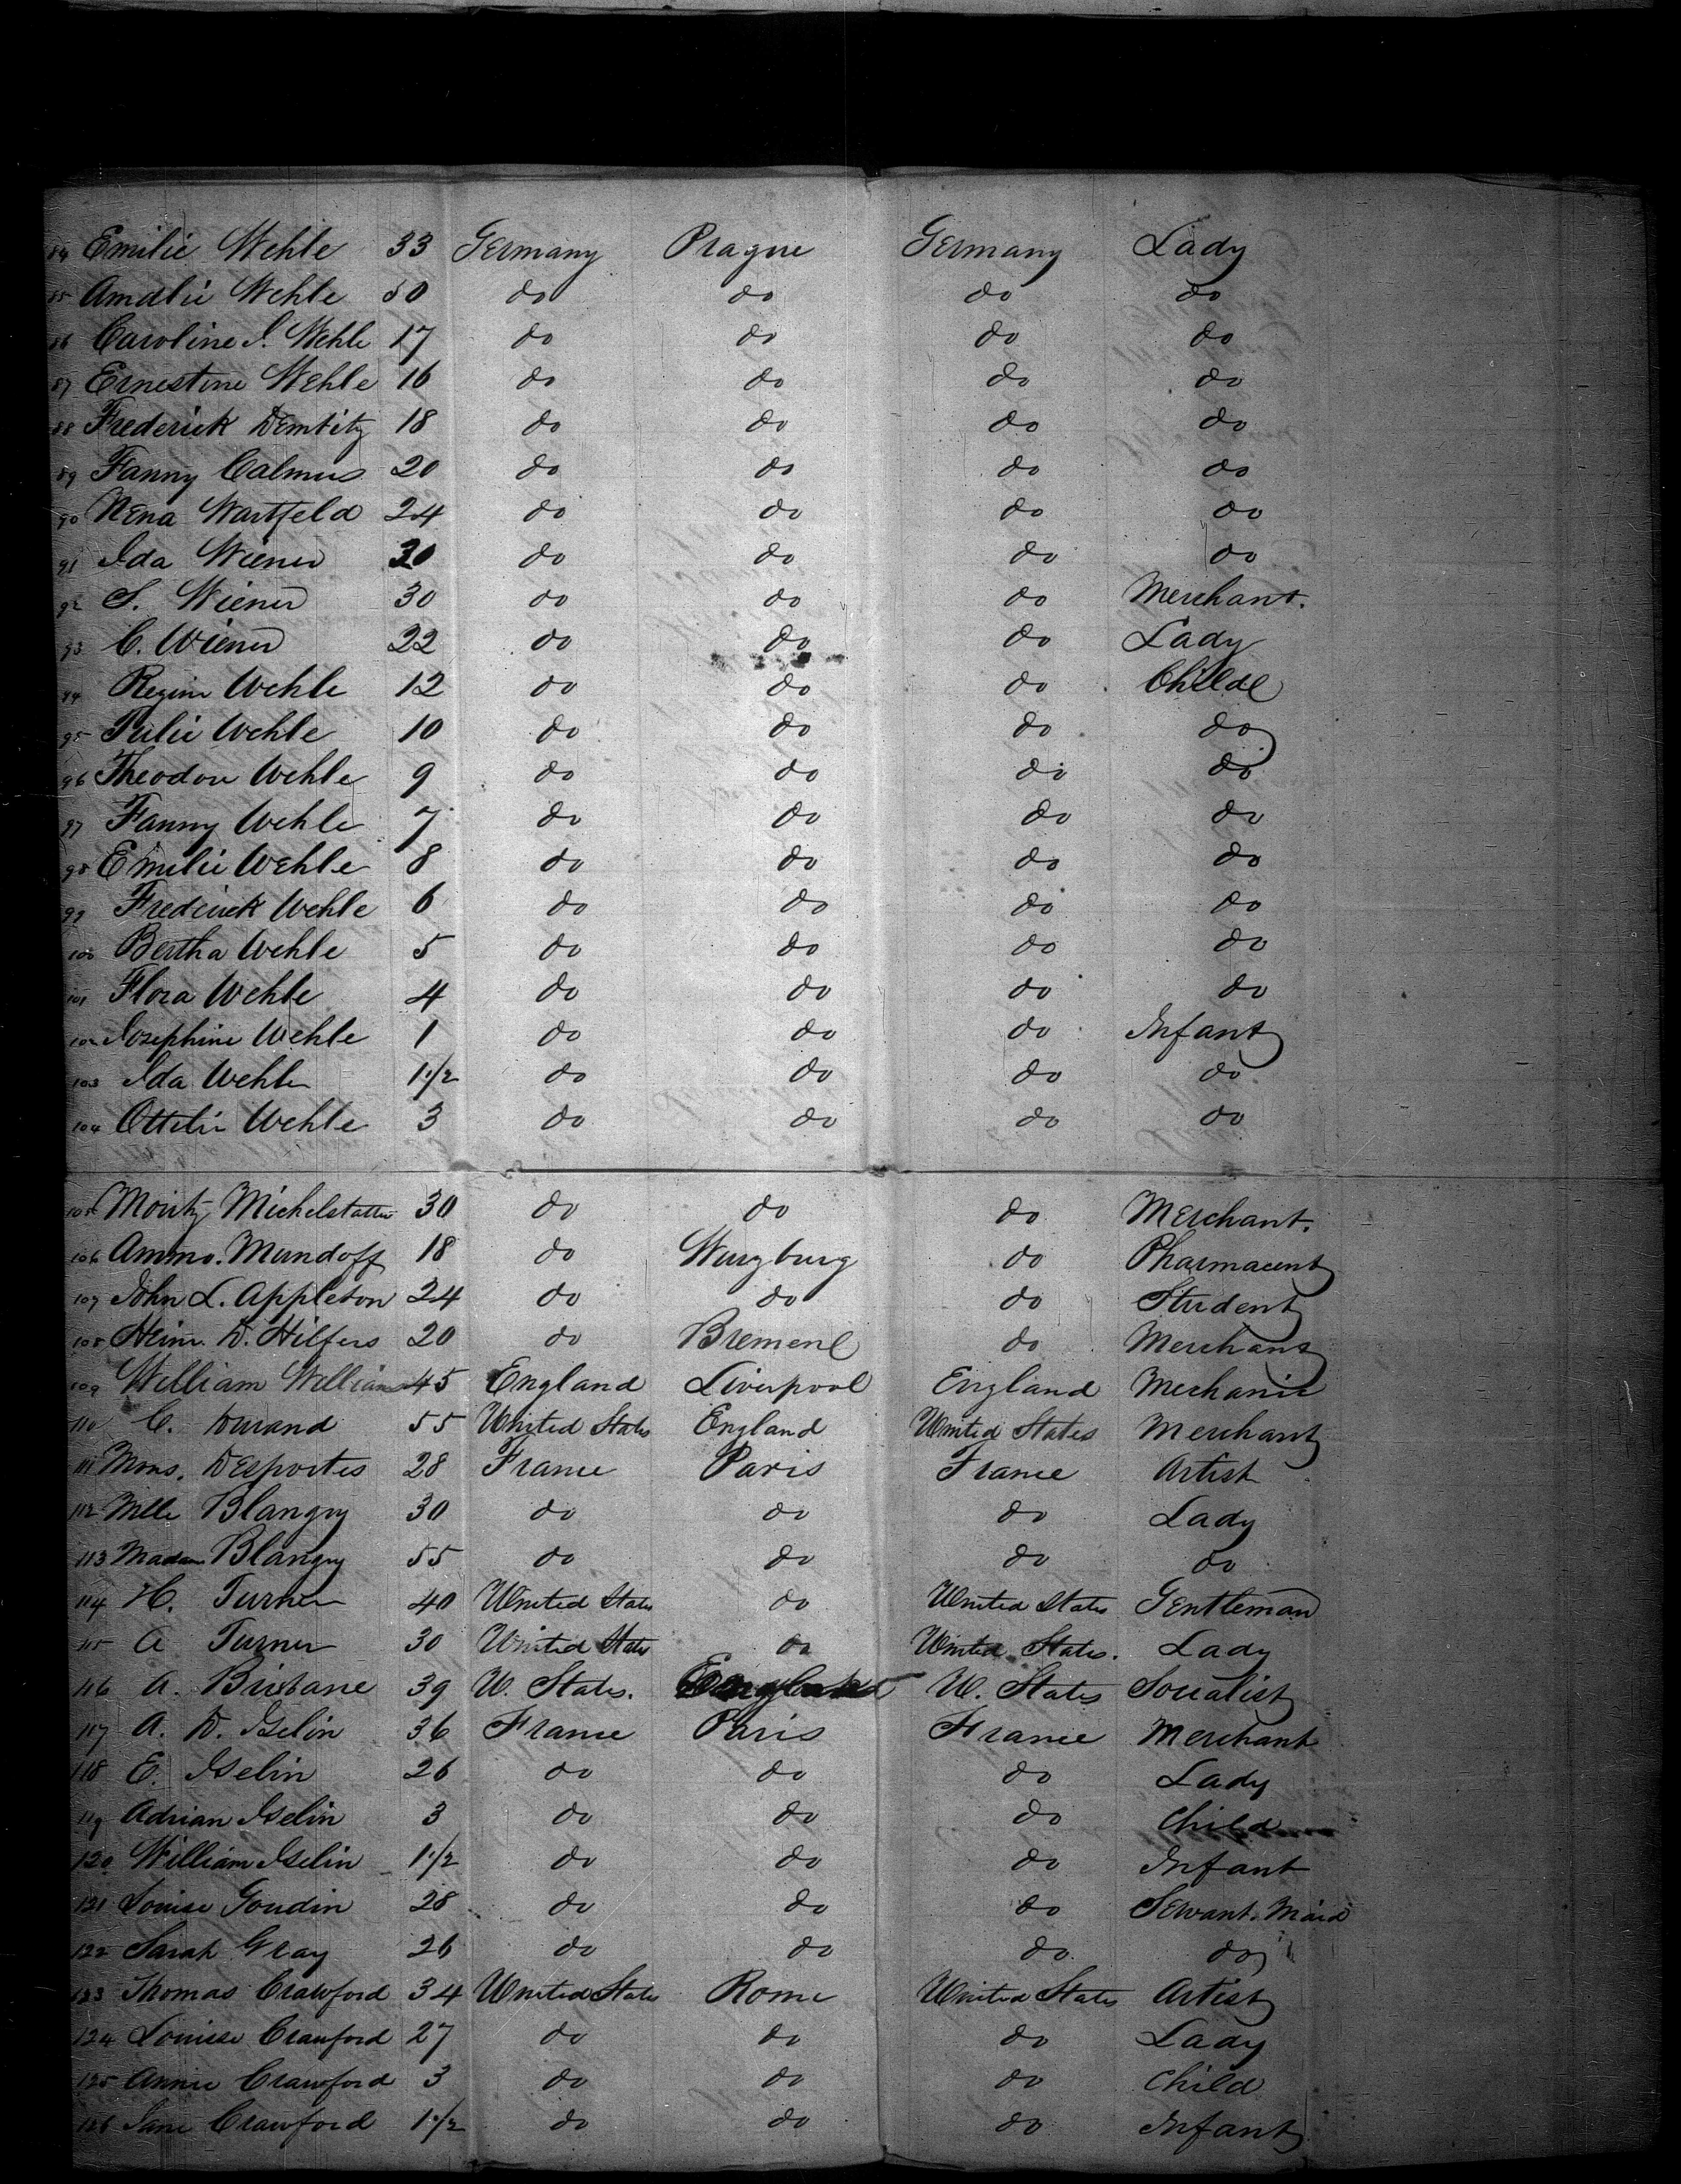 84 Emilie Wehle 33 Germany Prague Germany Lady
85 Amalie Wehle 50 do do do do
86 Caroline I. Wehle 17 do do do do
87 Ernestine Wehle 16 do do do do
88 Frederick Dembitz 18 do do do do
89 Fanny Calmus 20 do do do do
90 Nena Wartfeld 24 do do do do
91 Ida Wiener 30 do do do do
92 S. Wiener 30 do do do Merchant.
93 C. Wiener 22 do do do Lady
94 Regine Wehle 12 do do do Child
95 Julie Wehle 10 do do do do
96 Theodore Wehle 9 do do do do
97 Fanny Wehle 7 do do do do
98 Emilie Wehle 8 do do do do
99 Frederick Wehle 6 do do do do
100 Bertha Wehle 5 do do do do
101 Flora Wehle 4 do do do do
102 Josephine Wehle 1 do do do Infant
103 Ida Wehle 1 1/2 do do do do
104 Ottilie Wehle 3 do do do do
105 Moritz Michelstatter 30 do do do Merchant.
106 Ammo. Mundoff 18 do Wurzburg do Pharmaceut
107 John L. Appleton 24 do do do Student
108 Heinr. D. Hilfers 20 do Bremen do Merchant
109 William Williams 45 England Liverpool England Mechanic
110 C. Durand 55 United States England United States Merchant
111 Mons. Desportes 28 France Paris France Artist
112 Mlle Blangy 30 do do do Lady
113 Madam Blangy 55 do do do do
114 H. Turner 40 United States do United States Gentleman
115 A Turner 30 United States do United States. Lady
116 A. Brisbane 39 U. States. England U. States Socialist
117 A. D. Iselin 36 France Paris France Merchant
118 E. Iselin 26 do do do Lady
119 Adrian Iselin 3 do do do Child
120 William Iselin 1 1/2 do do do Infant
121 Louise Goudin 28 do do do Servant. Maid
122 Sarah Gray 26 do do do do
123 Thomas Crawford 34 United States Rome United States Artist
124 Louise Crawford 27 do do do Lady
125 Annie Crawford 3 do do do Child
126 Jane Crawford 1 1/2 do do do Infant